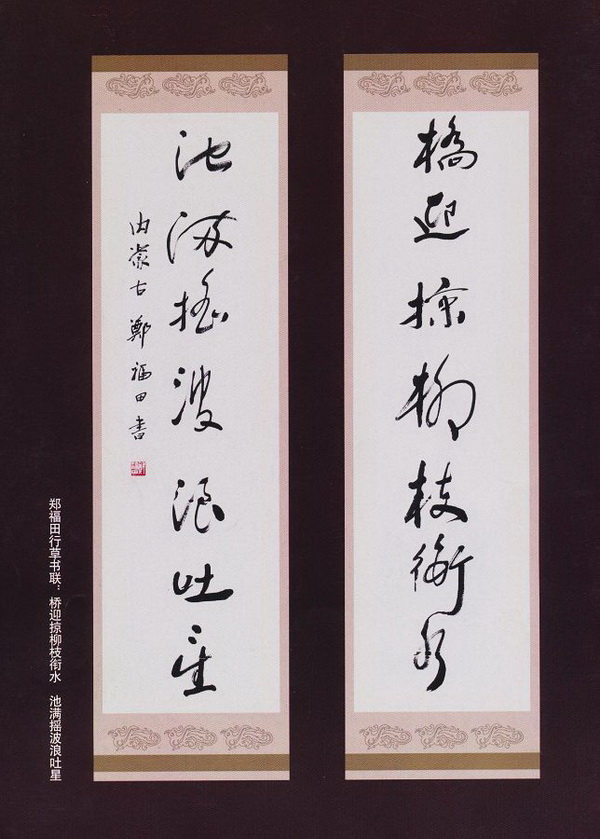 橋迎掠柳枝銜水
池满摇波浪吐星
内蒙古鄭福田書
郑福田行草书联：桥迎掠柳枝衔水 池满摇波浪吐星